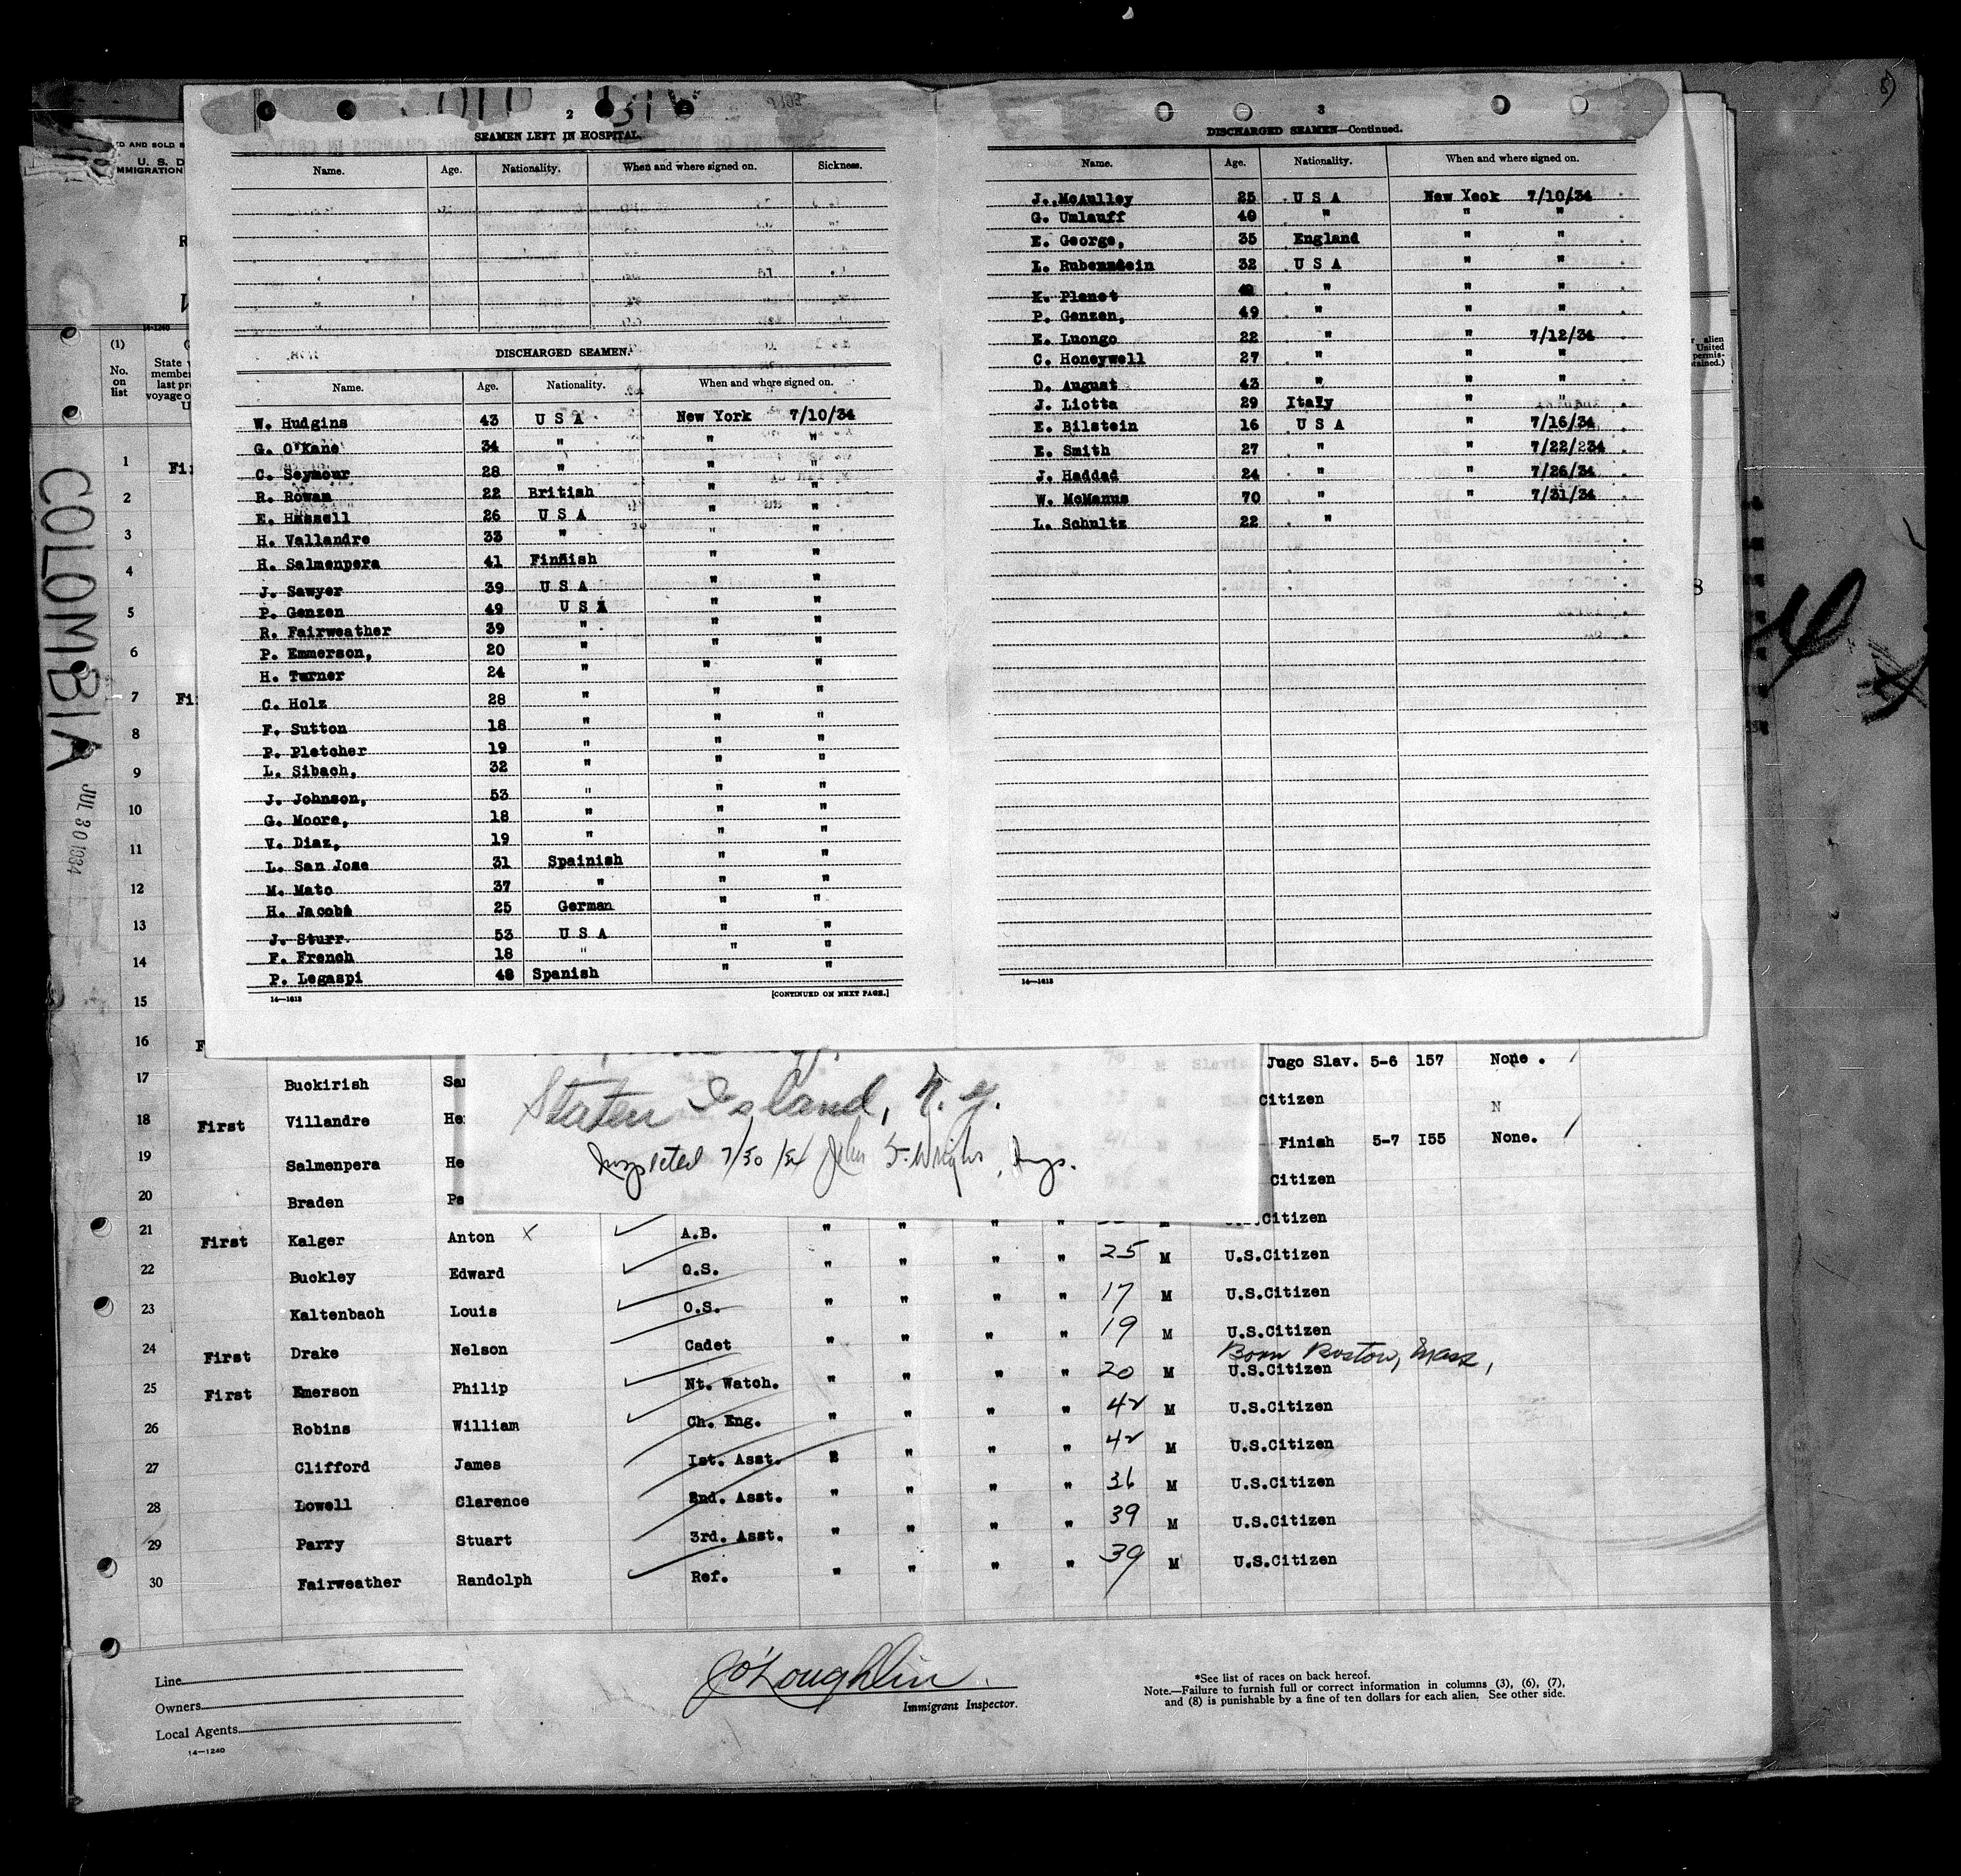 2
SEAMEN LEFT IN HOSPITAL.
Name. Age. Nationality. When and where signed on. Sickness.
DISCHARGED SEAMEN.
Name. Age. Nationality. When and where signed on.
W. Hudgins 43 U S A New York 7/10/34
G. O'Kane 34 " " "
C. Seymour 28 " " "
R. Rowan 22 British " "
E. Hassell 26 U S A " "
H. Vallandre 33 " " "
H. Salmenpera 41 Finnish " "
J. Sawyer 39 U S A " "
P. Genzen 49 U S A " "
R. Fairweather 39 " " "
P. Emmerson, 20 " " "
H. Turner 24 " " "
C. Holz 28 " " "
F. Sutton 18 " " "
P. Pletcher 19 " " "
L. Sibach, 32 " " "
J. Johnson, 53 " " "
G. Moore, 18 " " "
V. Diaz, 19 " " "
L. San Jose 31 Spainish " "
M. Mato 37 " " "
H. Jacobi 25 German " "
J. Sturr 53 U S A " "
F. French 18 " " "
P. Legaspi 48 Spanish " "
14—1613 [CONTINUED ON NEXT PAGE.]
3
DISCHARGED SEAMEN—Continued.
Name. Age. Nationality. When and where signed on.
J. McAulley 25 U S A New Yeok 7/10/34
G. Umlauff 40 " " "
E. George, 35 England " "
L. Rubennstein 32 U S A " "
K. Planet " " "
P. Genzen, 49 " " "
E. Luongo 22 " " 7/12/34
C. Honeywell 27 " " "
D. August 43 " " "
J. Liotta 29 Italy " "
E. Bilstein 16 U S A " 7/16/34
E. Smith 27 " " 7/22/234
J. Haddad 24 " " 7/26/34
W. McManus 70 " " 7/31/34
L. Schultz 22 "
14—1613
ED AND SOLD B
U. S. D
MMIGRATION
14-1240
(1)
No. on list
State
member
last pr
voyage o
U
r alien
United
permis-
tained.)
COLOMBIA
JUL 30 1934
1 Fi
2
3
4
5
6
7 Fi
8
9
10
11
12
13
14
15
16 F
Jugo Slav. 5-6 157 None .
17 Buckirish Sa
Citizen
18 First Villandre He
N
Finish 5-7 I55 None.
19 Salmenpera He
Citizen
20 Braden Pe
Citizen
Staten Island, N.Y.
Inspected 7/30/34 John F. Wright, Insp.
21 First Kalger Anton X A.B. " " " " 25 M U.S.Citizen
22 Buckley Edward O.S. " " " " 17 M U.S.Citizen
23 Kaltenbach Louis O.S. " " " " 19 M U.S.Citizen
Born Boston, Mass,
24 First Drake Nelson Cadet " " " " 20 M U.S.Citizen
25 First Emerson Philip Nt. Watch. " " " " 42 M U.S.Citizen
26 Robins William Ch. Eng. " " " " 42 M U.S.Citizen
27 Clifford James Ist. Asst. " " " " 36 M U.S.Citizen
28 Lowell Clarence 2nd. Asst. " " " " 39 M U.S.Citizen
29 Parry Stuart 3rd. Asst. " " " " 39 M U.S.Citizen
30 Fairweather Randolph Ref. " " " "
Line
Owners
Local Agents
14—1240
J O'Loughlin
Immigrant Inspector.
*See list of races on back hereof.
Note.—Failure to furnish full or correct information in columns (3), (6), (7),
and (8) is punishable by a fine of ten dollars for each alien. See other side.